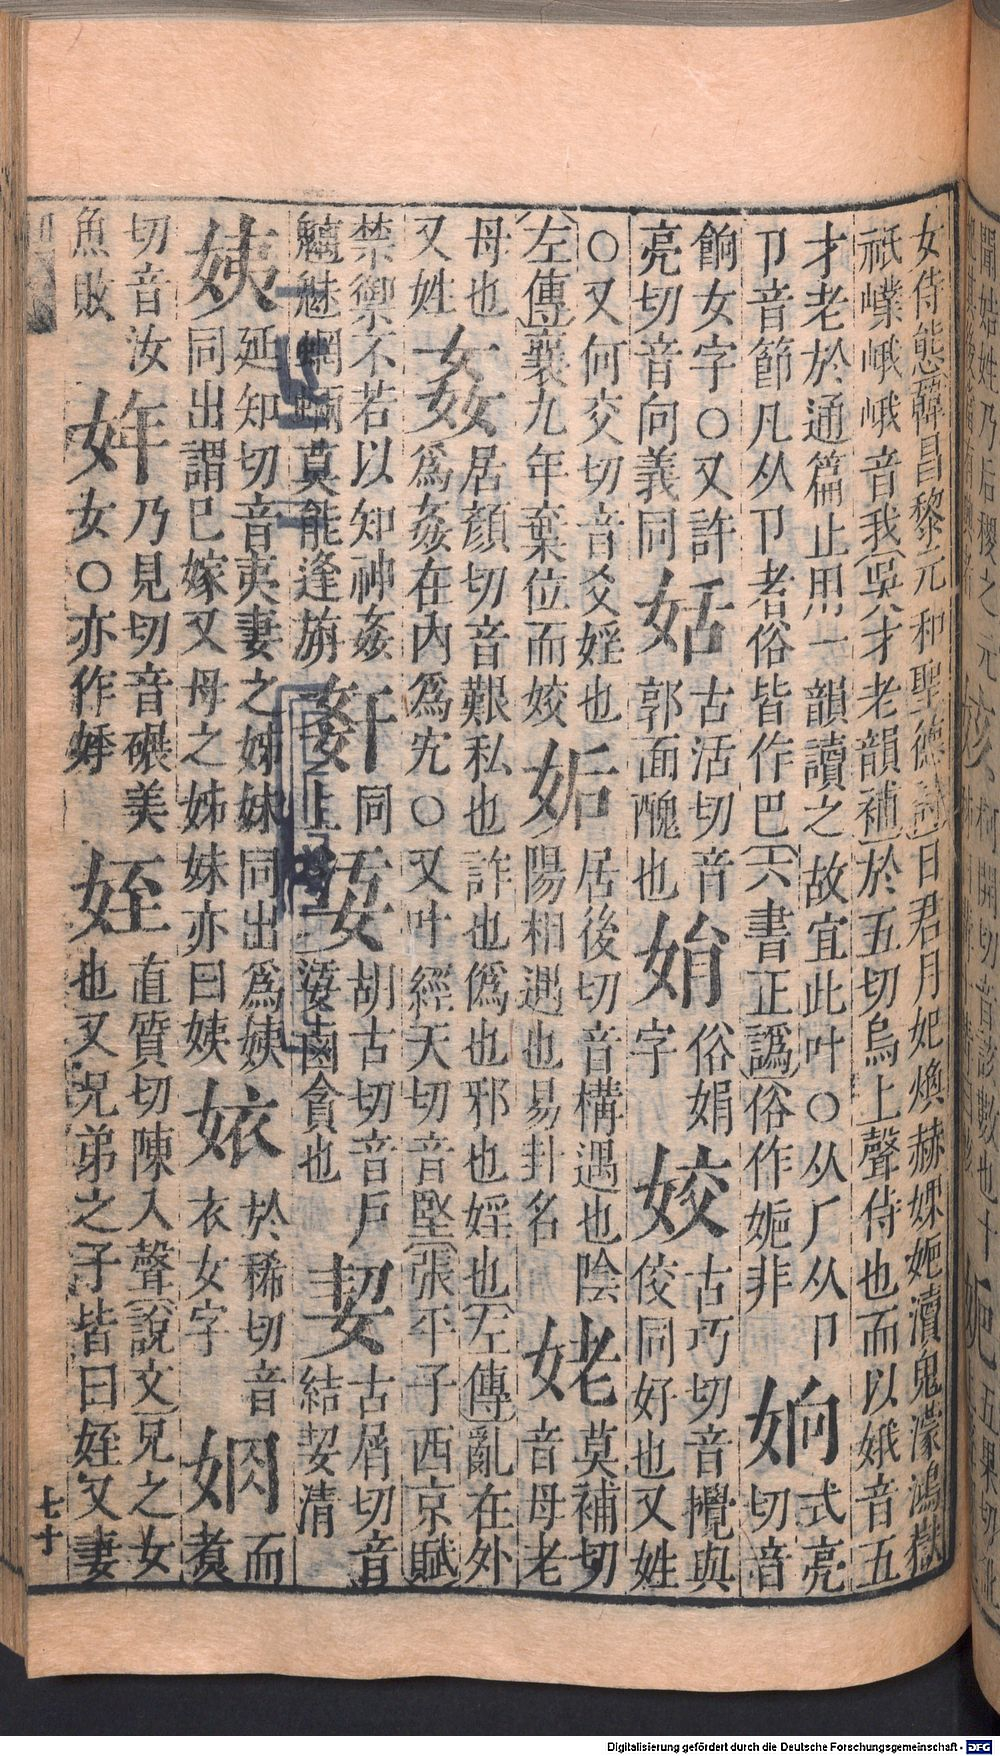 女侍態韓昌黎元和聖德詩日君月妃煥赫婐㛂瀆鬼濛鴻嶽祇嶪峨峨音我吳才老韻補於五切烏上聲侍也而以娥音五
才老於通篇止用一韻讀之故宜此叶○从厂从卩卩音節凡从卩者俗皆作巴六書正譌俗作㛂非姠式亮切音
餉女字○又許亮切音向義同姡古活切音郭面醜也姢俗娟字姣古巧切音攪與佼同好也又姓
○又何交切音爻婬也左傳襄九年棄位而姣姤居後切音構遇也陰陽相遇也易卦名姥莫補切音母老
母也又姓姦居顏切音艱私也詐也偽也邪也婬也左傳亂在外為姦在內為宄○又叶經天切音堅張平子西京賦
禁禦不若以知神姦魑魅蝄蜽莫能逢旃姧同上胡古切音戶鹵貪也㛃古屑切音結㛃清
姨延知切音夷妻之姊妹同出為姨同出謂已嫁又母之姊妹亦曰姨㛄於稀切音衣女字而煮
切音汝魚敗姩乃見切音碾美女○亦作姪直質切陳入聲說文兄之女也又兄弟之子皆曰姪又妻
七十
Digitalisierung gefördert durch die Deutsche Forschungsgemeinschaft - DFG